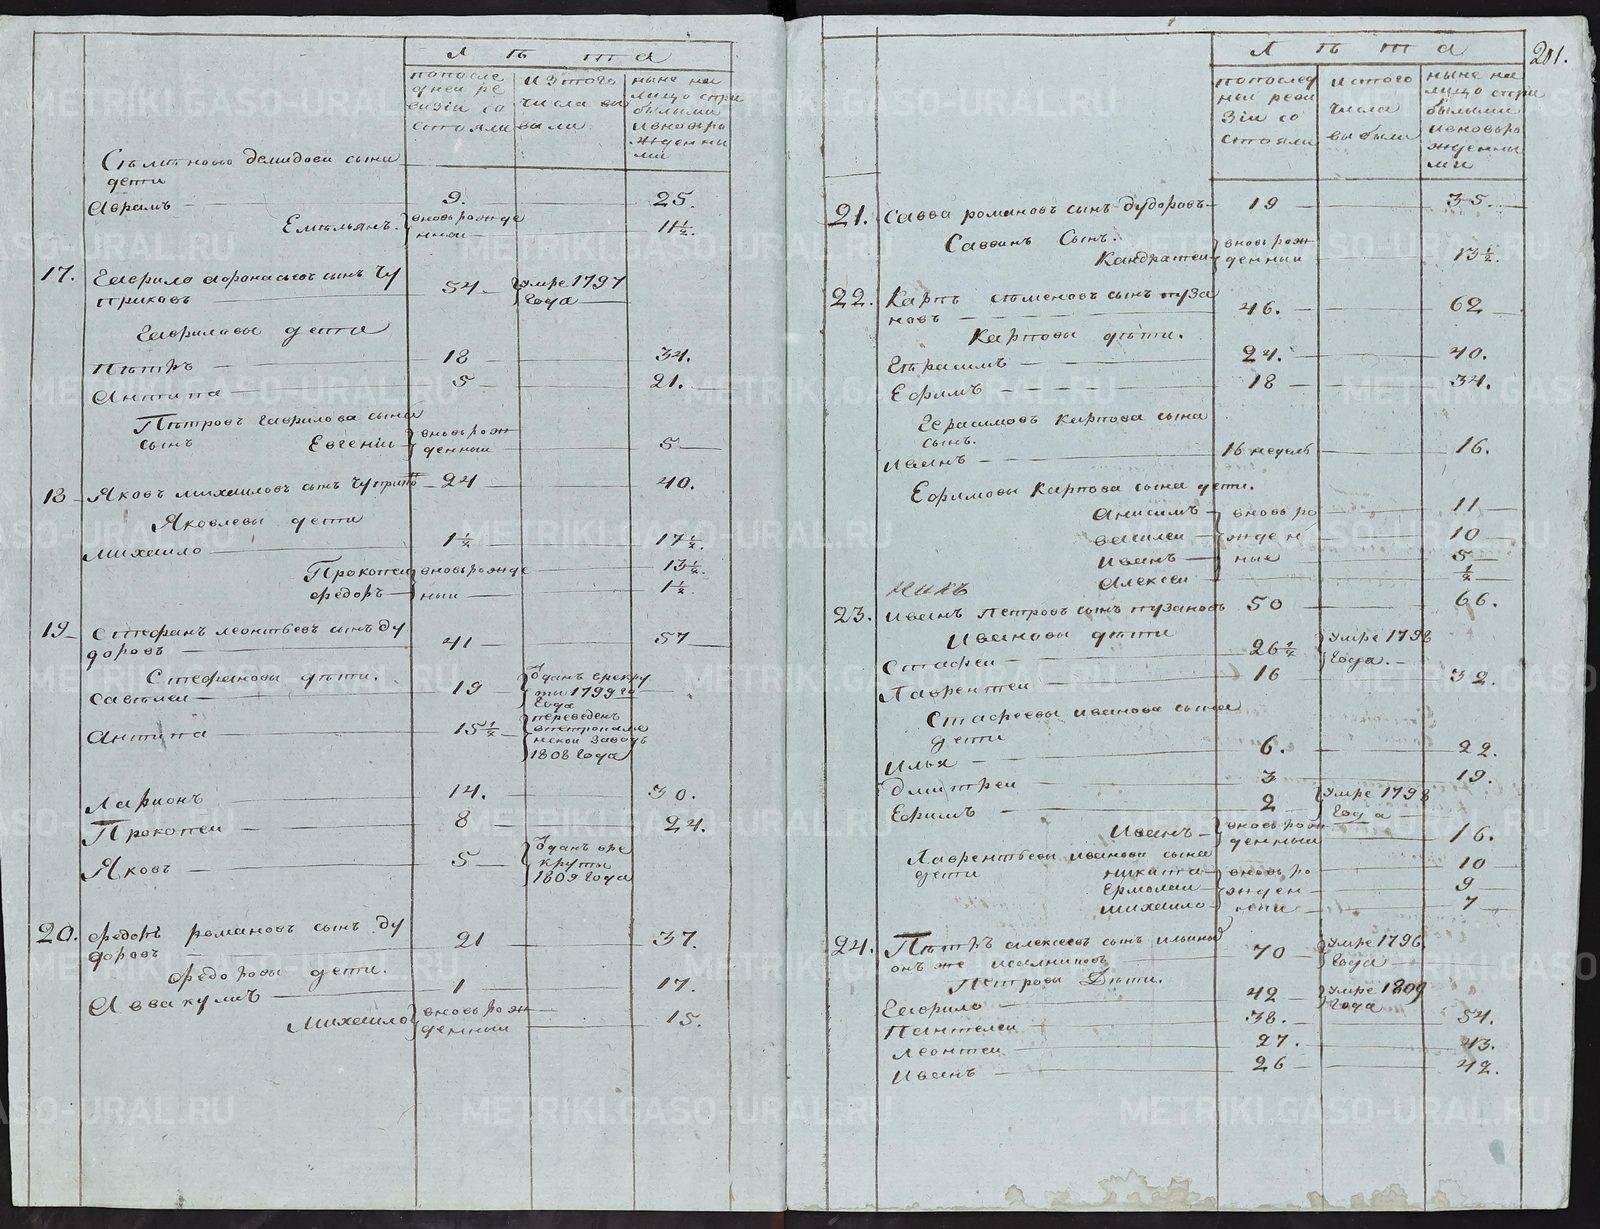 Лѣта
попосле
дней ре
визiи со
стояли
изтого
числа вы
были
ныне на
лицо спри
былыми
ивновьро
жденны
ми
дети
Аврамъ 9. 25.
Емельянъ вновьрожде
нной 11½.
17. Гаврило афонасьевъ сынъ Чу
приковъ 54 умре 1797
года
Гавриловы дети
Пѣтръ 18 34.
Антипа 5 21.
Пѣтровъ гаврилова сына
сынъ Евгенiи вновьрож
денный 5
18 Яковъ михаиловъ сынъ 24 40.
Яковлевы дети
михаило 1½ 17½.
Прокопеи вновьрожде 13½.
Федоръ ныи 1½.
19 Стефанъ леонтьевъ сынъ ду
доровъ 41 57
Стефановы дѣти.
Савѣлеи 19 Зданъ врекру
ты 1799 го
года
Антипа 15½ переведенъ
нской заводъ
1808 года
Ларионъ 14. 30.
Прокопеи 8 24.
Яковъ 5 Зданъ вре
круты
1809 года
20. Федоръ романовъ сынъ ду
доровъ 21 37.
Федоровы дети.
Аввакумъ 1 17.
Михаило вновьрож
денный 15.
201.
Лѣта
попослед
ней реви
зiи со
стояли
изтого
числа
выбыли
ныне на
лицо спри
былыми
ивновьро
жденны
ми
21. Савва романовъ сынъ дудоровъ 19 35.
Саввинъ Сынъ.
Кандратеи вновьрож
денный 13½.
22. Карпъ семеновъ сынъ пуза
новъ 46. 62
Карповы дѣти.
Герасимъ 24. 40.
Ефимъ 18 34.
Герасимовъ карпова сына
сынъ.
Иванъ 16 недель 16.
Ефимовы Карпова сына дети.
Анисимъ вновьро 11
василеи жден 10
иванъ ные 5
Алексеи ½
23. Иванъ петровъ сынъ пузановъ 50 66.
Ивановы дѣти
Стафеи 26½ умре 1798
года.
Лаврентеи 16 32.
Стафеевы иванова сына
дети
Илья 6. 22.
Дмитреи 3 19.
Ефимъ 2 умре 1798
года
Иванъ вновьрож
денный 16.
Лаврентьевы иванова сына
дети никита вновьро 10
Ермолаи жден 9
михаило 7
24. Пѣтръ алексеевъ сынъ
онъ же 70 умре 1796
года
Петровы Дѣти.
Гаврило 42 умре 1809
года
Пантелеи 38. 54.
Леонтеи 27. 43.
Иванъ 26 42.